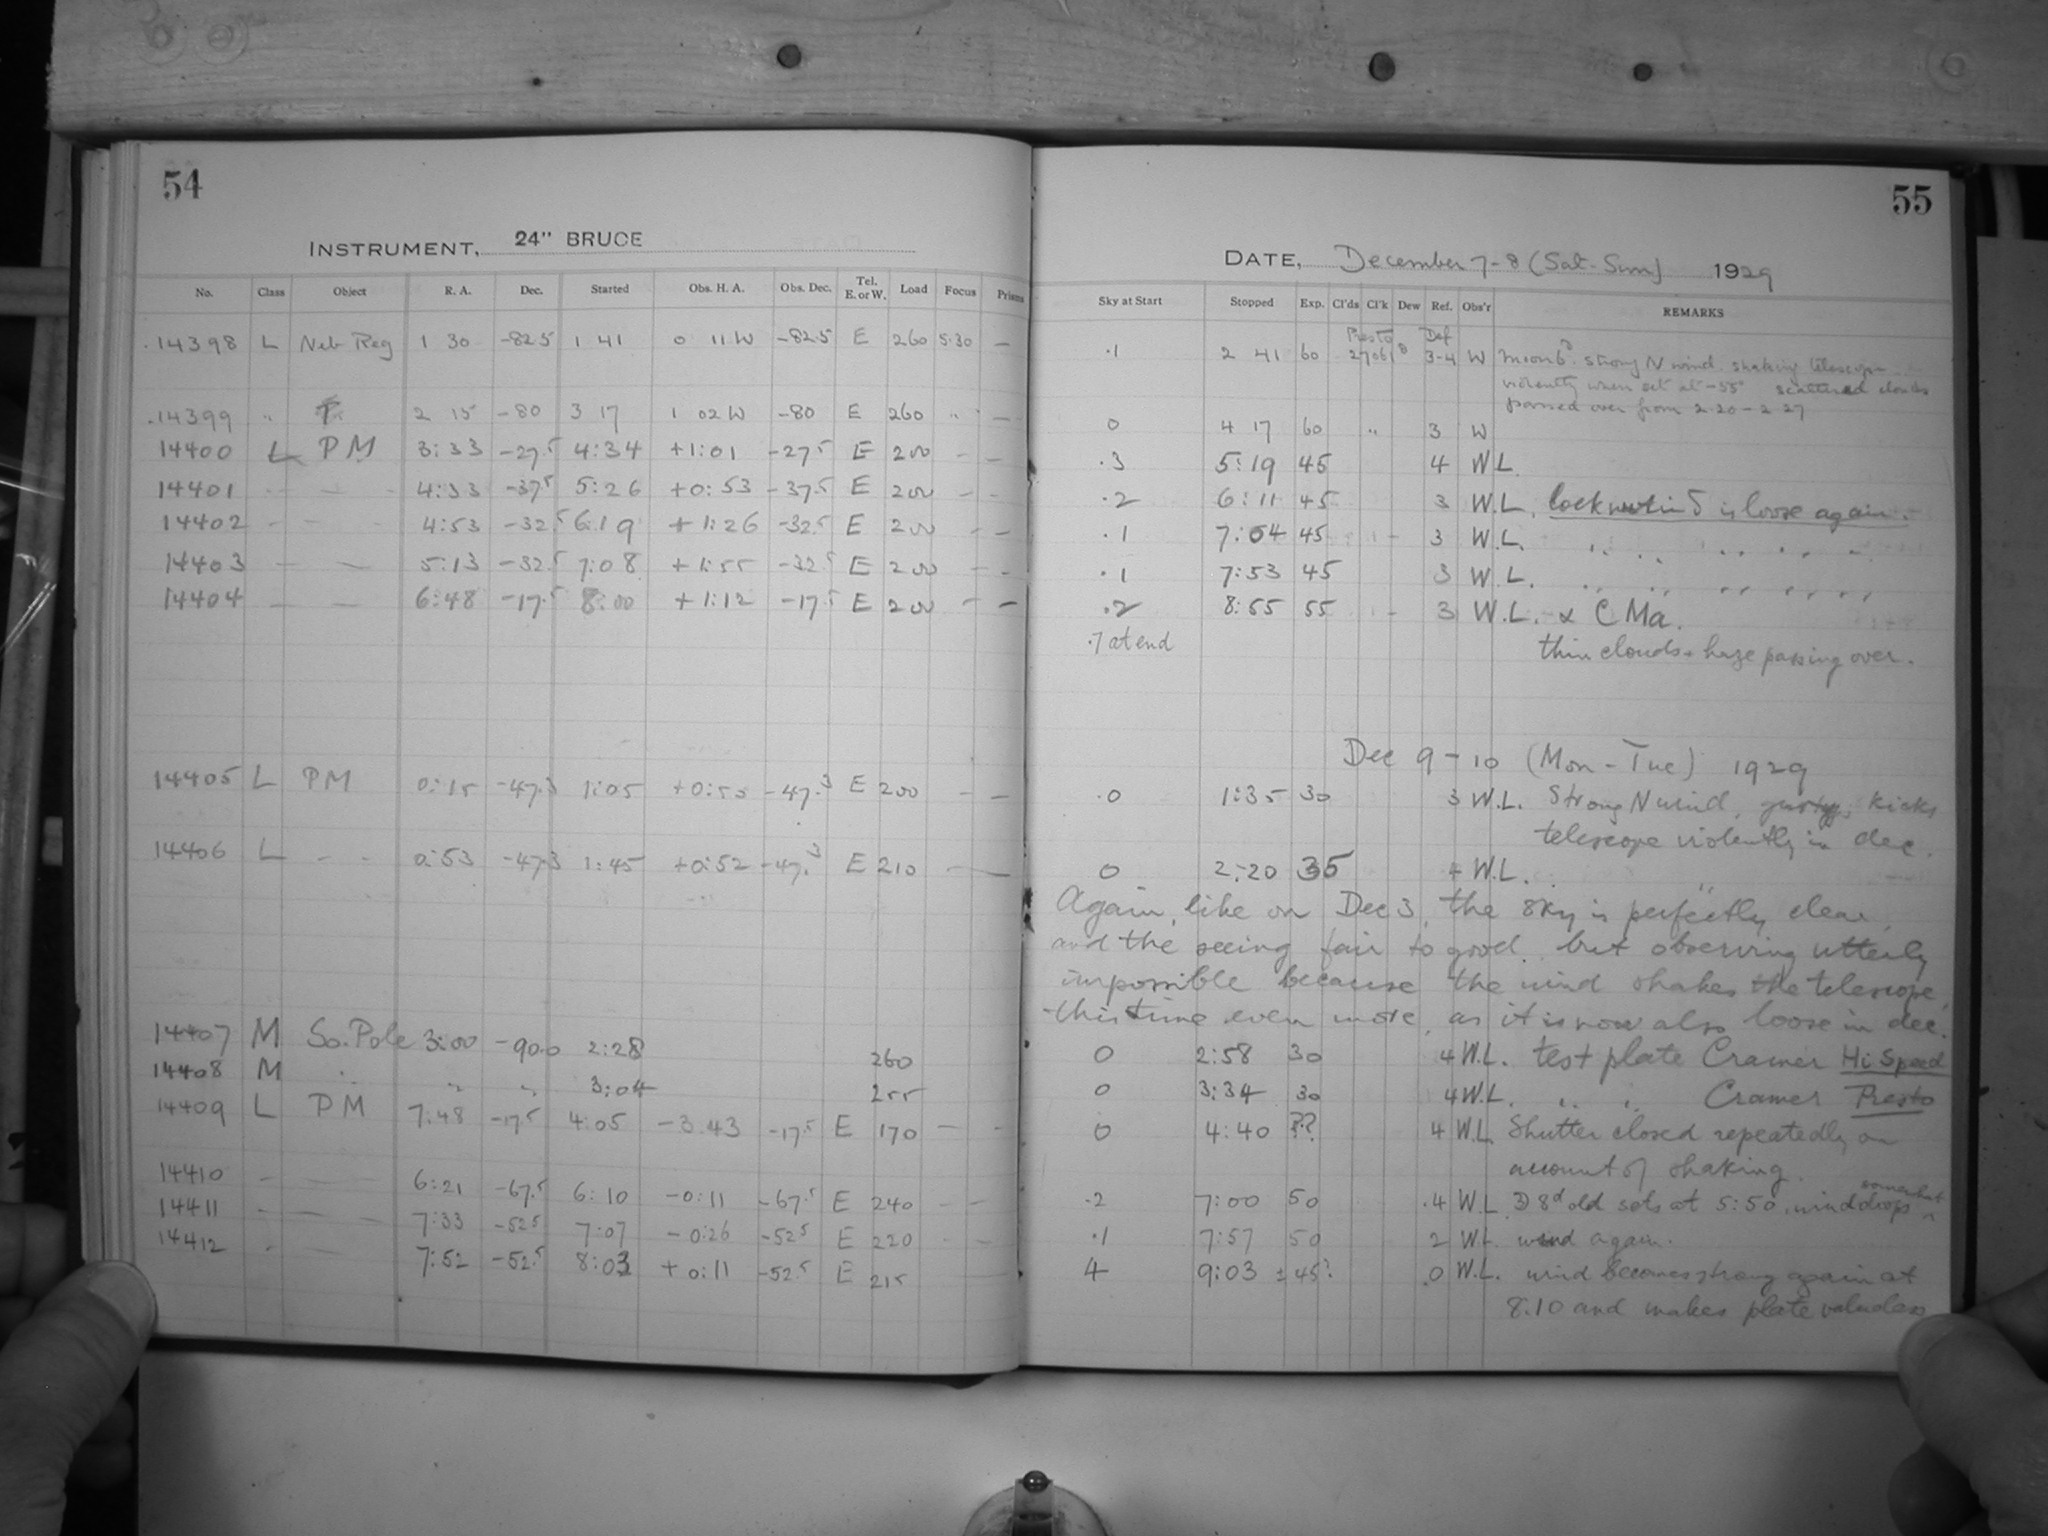 54
INSTRUMENT, 24" BRUCE
No. Class Object R. A. Dec. Started Obs. H. A. Obs. Dec. Tel. E. or W. Load Focus Prisms
14398 L Neb Reg 1 30 -82.5 1 41 0 11 W -82.5 E 260 5.30 —
14399 " 2 15 -80 3 17 1 02 W -80 E 260 " " —
14400 L PM 3:33 -27.5 4:34 +1:01 -27.5 E 200 - —
14401 - - - 4:33 -37.5 5:26 +0:53 -37.5 E 200 - —
14402 - - - 4:53 -32.5 6:19 +1:26 -32.5 E 200 - —
14403 — — 5:13 -32.5 7:08 +1:55 -32.5 E 200 - —
14404 — — 6:48 -17.5 8:00 +1:12 -17.5 E 200 - —
14405 L PM 0:15 -47.3 1:05 +0:50 -47.3 E 200 - —
14406 L - - 0:53 -47.3 1:45 +0:52 -47.3 E 210 — —
14407 M So. Pole 3:00 -90.0 2:28 260
14408 M " " " 3:04 255
14409 L PM 7:48 -17.5 4:05 -3.43 -17.5 E 170 — -
14410 - — 6:21 -67.5 6:10 -0:11 -67.5 E 240 - —
14411 - — 7:33 -52.5 7:07 -0:26 -52.5 E 220 - —
14412 - — 7:52 -52.5 8:03 +0:11 -52.5 E 215 —
55
DATE, December 7-8 (Sat-Sun) 1929
Sky at Start Stopped Exp. Cl'ds Cl'k Dew Ref. Obs'r REMARKS
Presto Def
.1 2 41 60 27061 8 3-4 W moon 6d. strong N wind shaking telescope
violently when set at -55° scattered clouds
passed over from 2.20 - 2.27
0 4 17 60 " 3 W
.3 5:19 45 4 W L.
.2 6:11 45 3 W.L. locknut in δ is loose again.
.1 7:04 45 3 W.L. " " " " "
.1 7:53 45 3 W.L. " " " " "
.2 8:55 55 3 W.L. α C Ma.
.7 at end thin clouds + haze passing over.
Dec 9-10 (Mon-Tue) 1929
.0 1:35 30 3 W.L. Strong N wind, gusty, kicks
telescope violently in dec.
0 2:20 35 4 W.L. "
Again, like on Dec 3, the sky is perfectly clear
and the seeing fair to good, but observing utterly
impossible because the wind shakes the telescope,
this time even more, as it is now also loose in dec.
0 2:58 30 4 W.L. test plate Cramer Hi Speed
0 3:34 30 4 W.L. " " Cramer Presto
0 4:40 ?? 4 W.L. Shutter closed repeatedly on
account of shaking.
.2 7:00 50 .4 W.L. ☽ 8d old sets at 5:50, wind drops somewhat
.1 7:57 50 2 W.L. wind again.
4 9:03 ±45? .0 W.L. wind becomes strong again at
8:10 and makes plate valueless